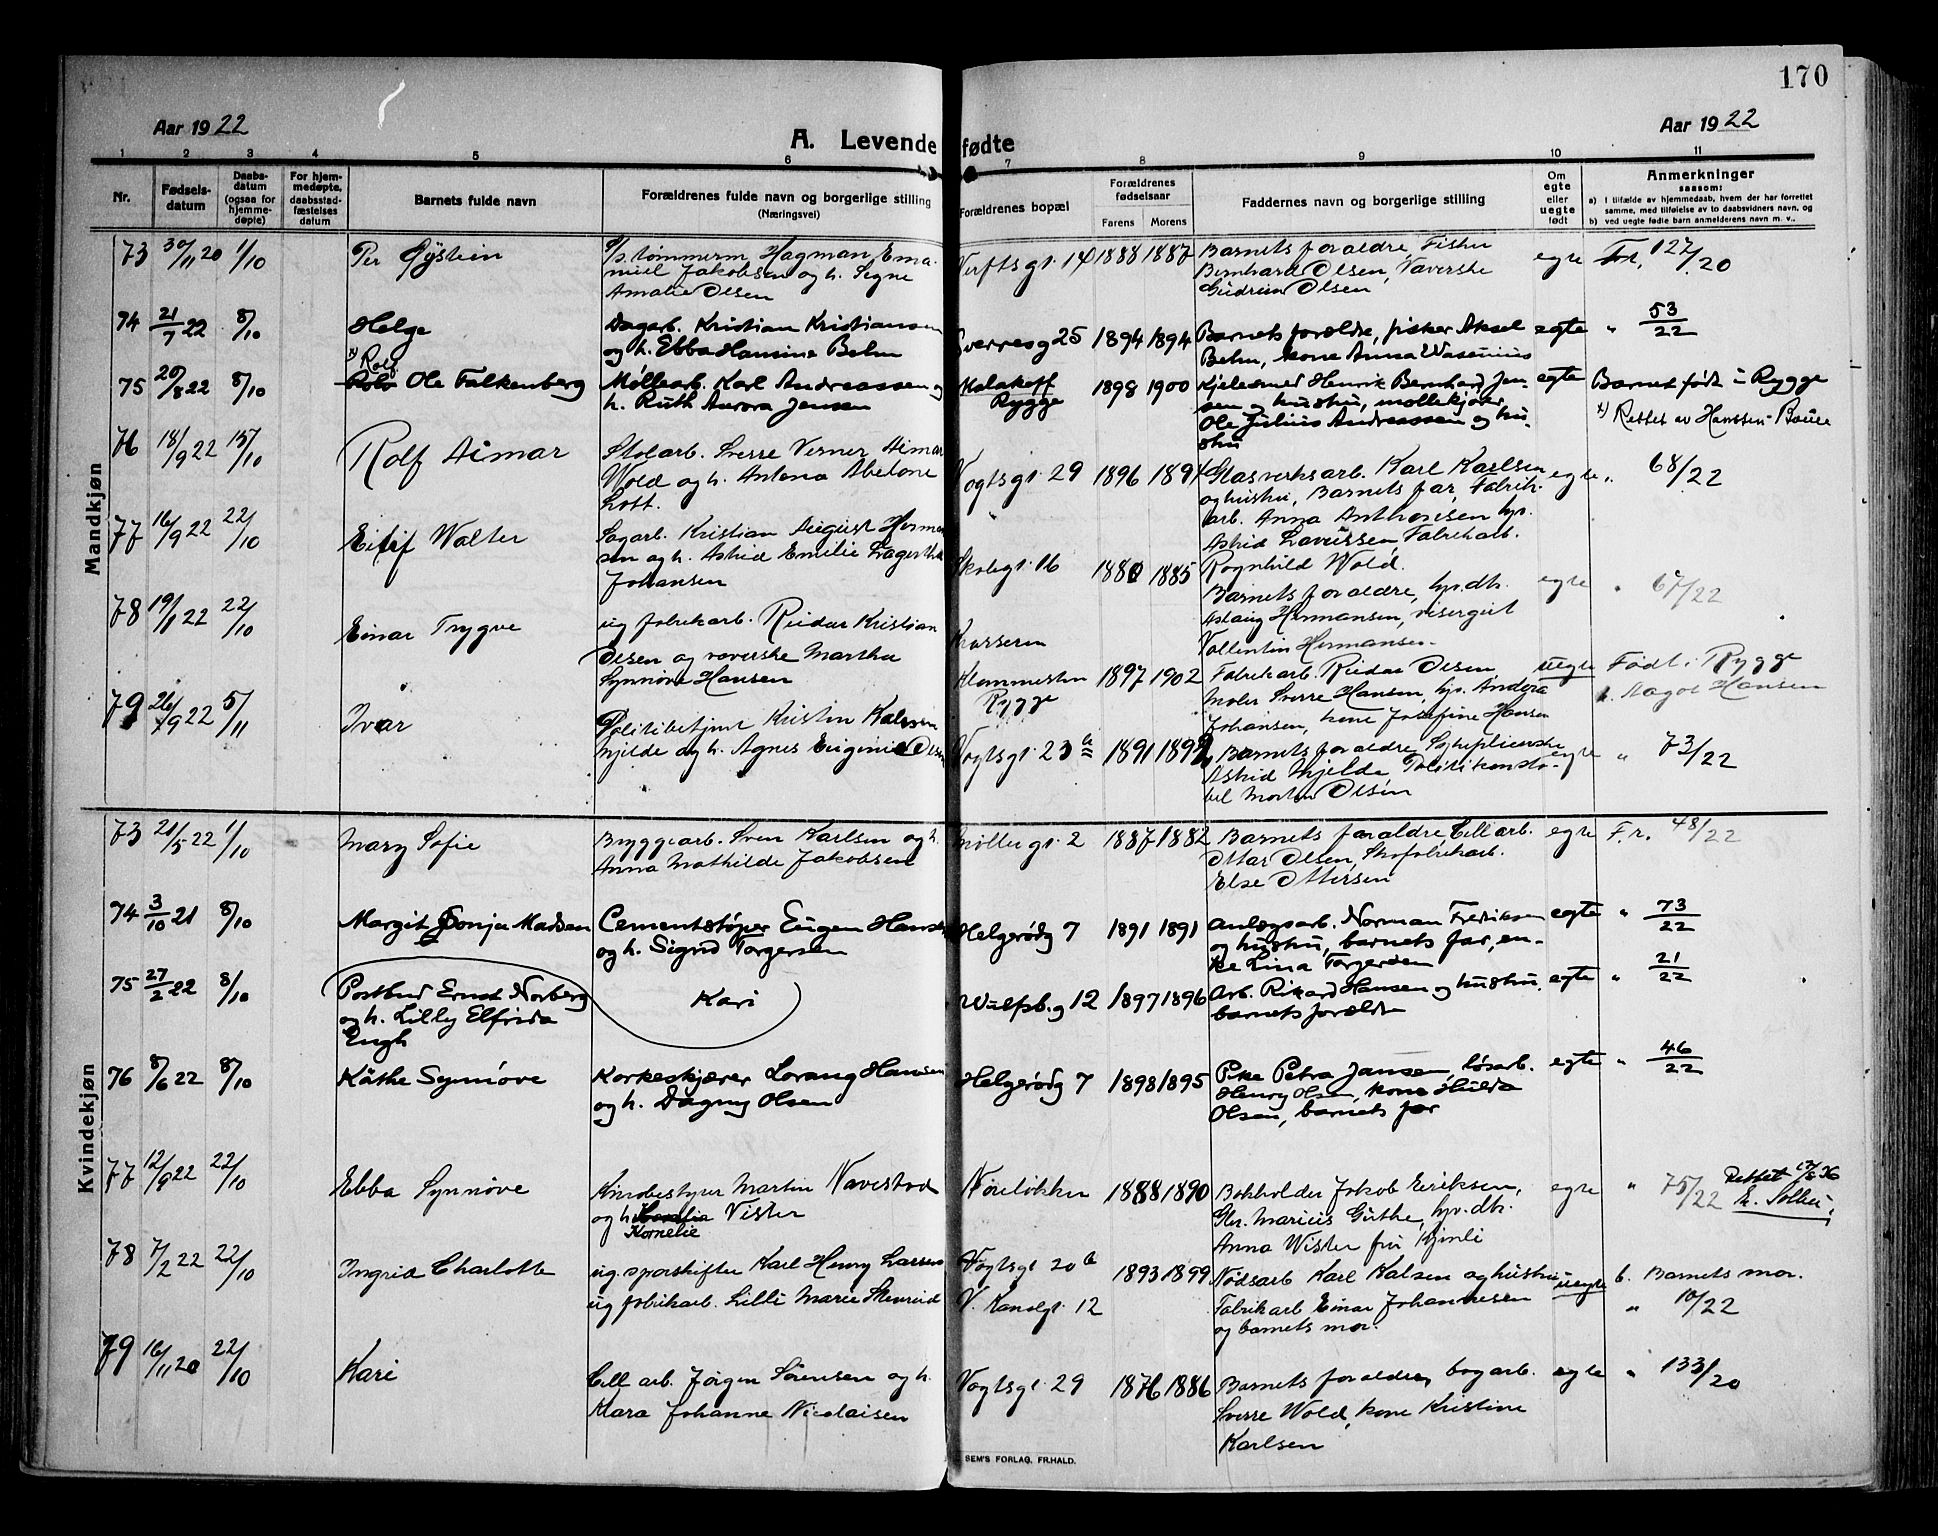 170
Aar 1922
A. Levende fødte
Aar 1922
1 2 3 4 5 6 7 8 9 10 11
Nr.
Fødsels-
datum
Daabs-
datum
(ogsaa for
hjemme-
døpte)
For hjem-
medøpte,
daabsstad-
fæstelses
datum
Barnets fulde navn
Forældrenes fulde navn og borgerlige stilling
(Næringsvei)
Forældrenes bopæl
Forældrenes
fødselsaar
Farens Morens
Faddernes navn og borgerlige stilling
Om
egte
eller
uegte
født
Anmerkninger
saasom:
a) I tilfælde av hjemmedaab, hvem der har forrettet
samme, med tilføielse av to daabsvidners navn, og
b) ved uegte fødte barn anmelderens navn m. v.
Mandkjøn
73 30/11 20 1/10 Per Øystein
Tømmerm. Hagman Ema-
nuel Jakobsen og h. Signe
Amalie Olsen
Verftsgt. 14 1888 1887
Barnets foraldre, Fisker
Bernhard Olsen, Vaverske
Gudrun Olsen
egte Fr. 127/20
74 21/7 22 8/10 Helge
Dagarb. Kristian Kristiansen
og h. Ebba Hansine Behn
Sverresg 25 1894 1894
Barnets forældre, fisker Aksel
Behn, kone Anna Wasenius
egte " 53/22
75 20/8 22 8/10 x) Rolf
Rolv Ole Falkenberg
Møllearb. Karl Andreassen og
h. Ruth Aurora Jensen
Malakoff
Rygge
1898 1900
Kjelesmed Henrik Bernhard Jen-
sen og hustru, møllekjører
Ole Julius Andreassen og hu-
stru
egte Barnet født i Rygge
x) Rettet av Hanssen-Bauer
76 18/9 22 15/10 Rolf Aimar
Stolarb. Sverre Verner Aimar
Wold og h. Antona Abelone
Lott.
Vogtsgt. 29 1896 1897
Glasverksarb. Karl Karlsen
og hustru, Barnets far, Fabrik-
arb. Anna Anthonisen hp.
Astrid Lauritsen Fabrikarb.
Ragnhild Wold.
egte " 68/22
77 16/9 22 22/10 Eilif Walter
Sagarb. Kristian August Herman
sen og h. Astrid Emilie Lagertha
Johansen
Skolegt. 16 1880 1885
Barnets foraldre, hp.dtr.
Aslaug Hermansen, visergut
Vallentin Hermansen.
egte " 67/22
78 19/1 22 22/10 Einar Trygve
ug. fabrikarb. Reidar Kristian
Olsen og vaverske Martha
Synnøve Hansen
Krosseren
Klommesten
Rygge
1897 1902
Fabrikarb. Reidar Olsen
Maler Sverre Hansen, hp. Andora
Johansen, kone Josefine Hansen
uegte Født i Rygge
b. Aagot Hansen
79 26/9 22 5/11 Ivar
Politibetjent Kristen Kalsen
Hjelde og h. Agnes Eugenie Olsen
Vogtsgt. 23 b 1891 1899
Barnets foraldre, Sykepleierske
Astrid Hjelde, Politikonsta-
bel Morten Olsen
egte " 73/22
Kvindekjøn
73 20/5 22 1/10 Mary Sofie
Bryggearb. Sven Karlsen og h.
Anna Mathilde Jakobsen
Møllergt. 2 1887 1882
Barnets foraldre, Cell arb.
Ottar Olsen, Skofabrikarb.
Else Ottersen
egte Fr. 48/22
74 3/10 21 8/10 Margit Sonja Madsen
Cementstøper Eugen Hansen
og h. Signd Torgersen
Helgerødg 7 1891 1891
Anlegsarb. Norman Fredriksen
og hustru, barnets far, en-
ke Lina Torgersen
egte " 73/22
75 27/2 22 8/10 Postbud Ernst Norberg
og h. Lilly Elfrida
Engh
Kari
Wulfsb.g 12 1897 1896
Arb. Rikard Hansen og hustru,
barnets forældre
egte " 21/22
76 8/6 22 8/10 Käthe Synnöve
Korkeskjærer Lorang Hansen
og h. Dagny Olsen
Helgerødg 7 1898 1895
Pike Petra Jansen, løsarb.
Henry Olsen, kone Hulda
Olsen, barnets far
egte " 46/22
77 12/9 22 22/10 Ebba Synnøve
Kinobestyrer Martin Navestad
og h. Vister
Kornelie
Nøreløkken 1888 1890
Bokholder Jakob Eiriksen,
Gbr. Marius Guthe, hp. dtr.
Anna Wister fru Hjemli
egte " 75/22 Rettet
78 7/2 22 22/10 Ingrid Charlotte
ug. sporskifter Karl Henry Larsen
ug fabrikarb. Lilli Marie
Vogtsgt 20 b
V. Kanalgt. 12
1893 1899
Nødsarb Karl Kalsen og hustru
Fabrikarb Einar Johannesen
og barnets mor.
uegte b. Barnets mor.
" 10/22
79 16/11 20 22/10 Kari
Cell arb. Jørgen Sørensen og h.
Klara Johanne Nicolaisen
Vogtsgt. 29 1876 1886
Barnets foraldre, bogarb.
Sverre Wold, kone Kristine
Karlsen
egte " 133/20
SEM'S FORLAG, FR.HALD.